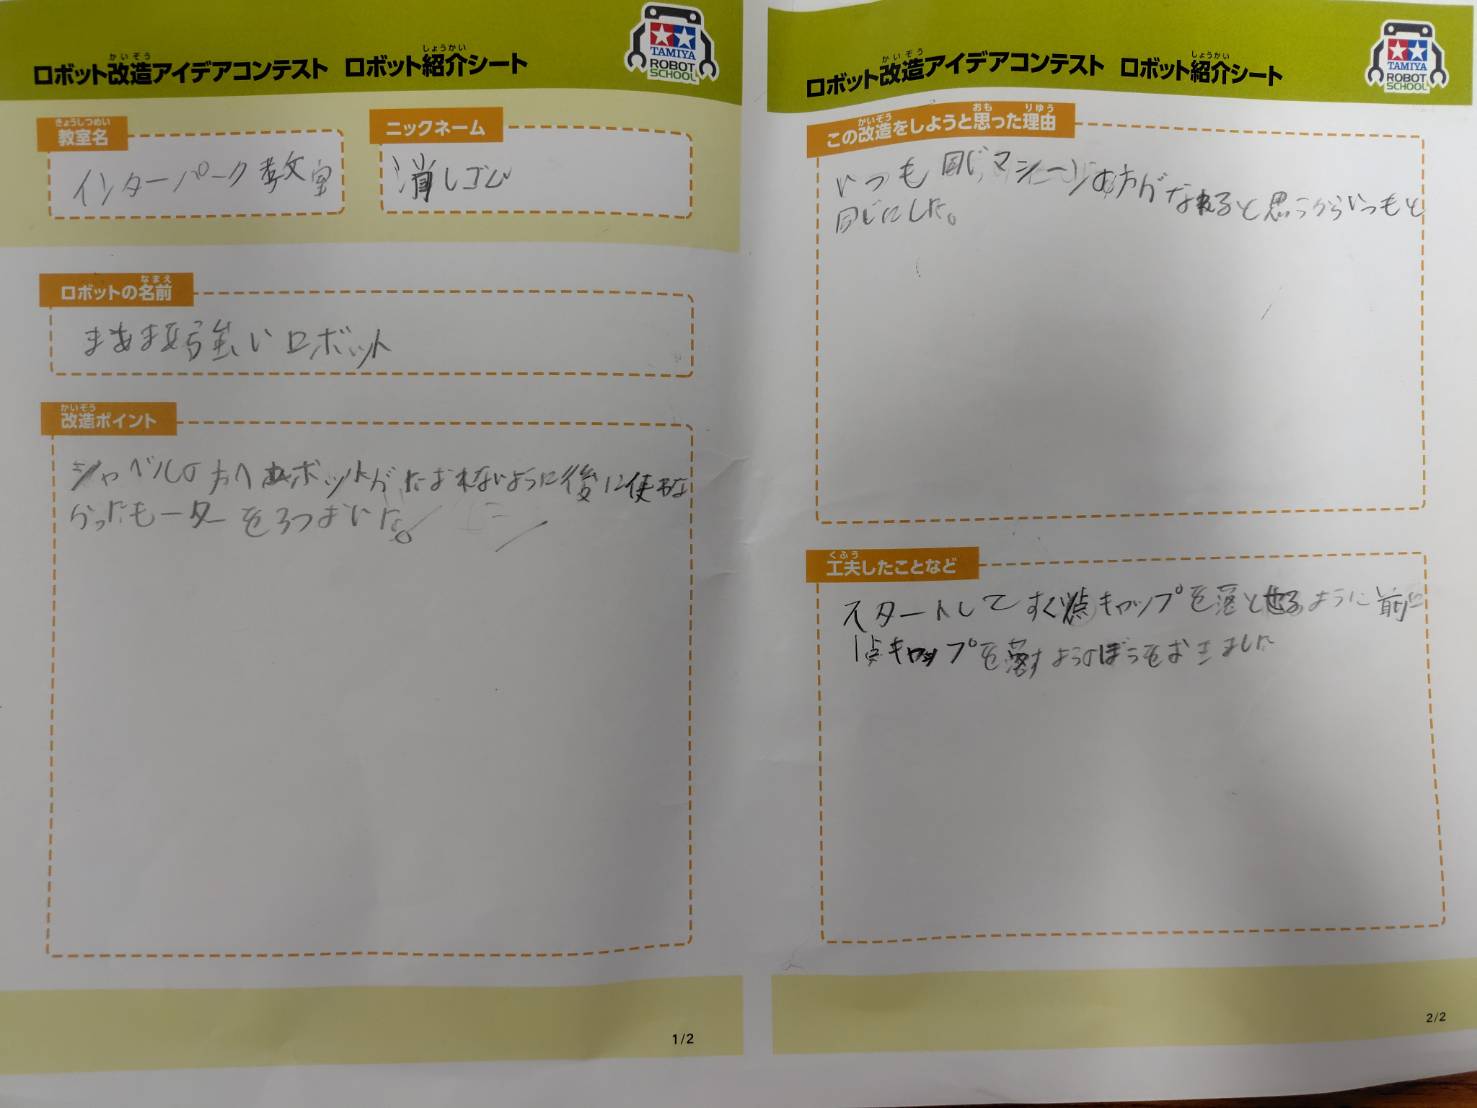 かいぞう しょうかい
ロボット改造アイデアコンテスト ロボット紹介シート
TAMIYA
ROBOT
SCHOOL
きょうしつめい
教室名
インターパーク教室
ニックネーム
消しゴム
なまえ
ロボットの名前
まあまあ強いロボット
かいぞう
改造ポイント
シャベルの方へロボットがたおれないように後に使わな
かったモーターをろつおいた。
1/2
かいぞう しょうかい
ロボット改造アイデアコンテスト ロボット紹介シート
TAMIYA
ROBOT
SCHOOL
かいぞう おも りゆう
この改造をしようと思った理由
いつも同じマシーンの方がなれると思うからいつもと
同じにした。
くふう
工夫したことなど
スタートしてすぐ点キャップを落とせるように前に
1点キャップを落すようのぼうをおきました
2/2